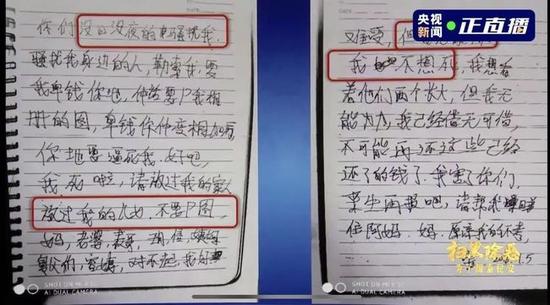 央视新闻 正直播
你们没日没夜的电话骚扰我
骚扰我身边的人,勒索我,要
我卑钱你地,仲话要P我相
册的图,卑钱你仲变相加
你地要逼死我,好吧
我死啦,请放过我的家人
放过我的儿女,不要P图
妈,老婆
对不起,我好
又难受,但
我 不想死,我想看
着他们两个长大,但我无
能为力,我已经借无可借,
不可能再还这些已经
还了的钱了,我害了你们,
来生再报吧,请帮我
信阿妈,妈,原谅我的不孝,
1.5
扫黑除恶
SHOT ON MI 8 SE
AI DUAL CAMERA
SHOT ON MI 8 SE
AI DUAL CAMERA